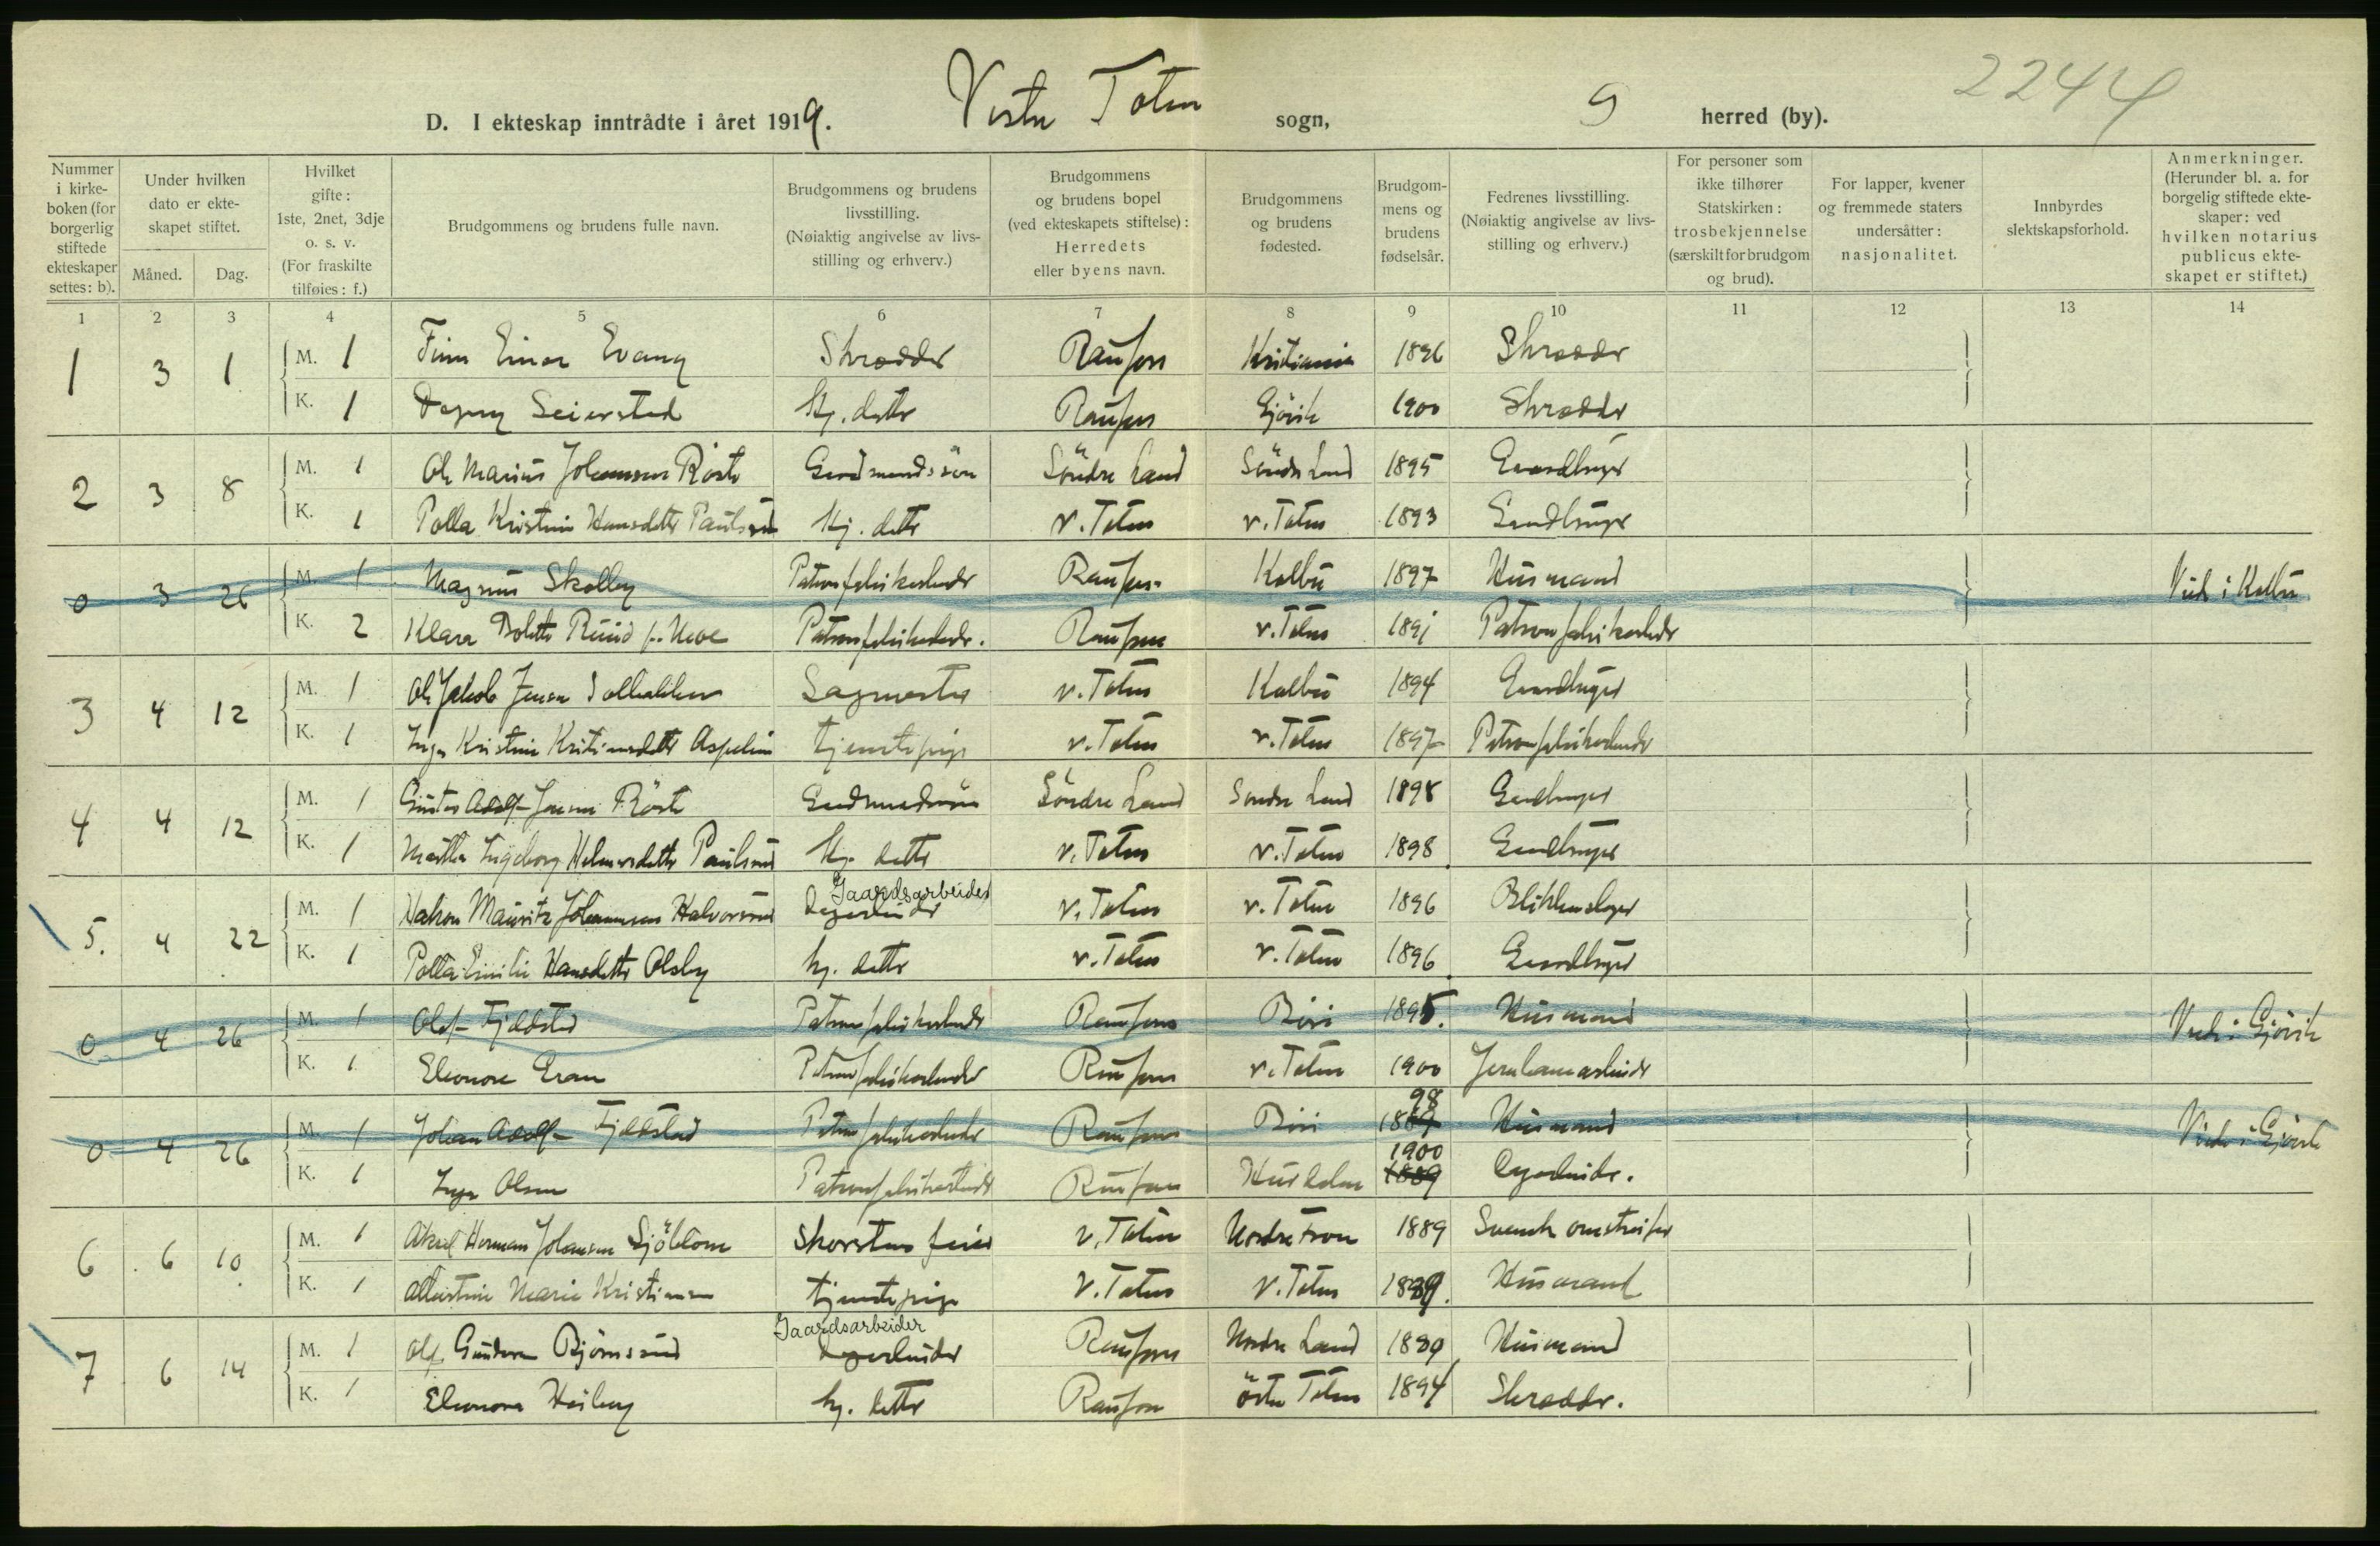 2244
D. I ekteskap inntrådte i året 1919. Vestre Toten sogn, 9 herred (by).
Nummer i kirkeboken (for borgerlig stiftede ekteskaper settes: b).
Under hvilken dato er ekteskapet stiftet.
Måned. Dag.
Hvilket gifte: 1ste, 2net, 3dje o. s. v. (For fraskilte tilføies: f.)
Brudgommens og brudens fulle navn.
Brudgommens og brudens livsstilling. (Nøiaktig angivelse av livsstilling og erhverv.)
Brudgommens og brudens bopel (ved ekteskapets stiftelse): Herredets eller byens navn.
Brudgommens og brudens fødested.
Brudgommens og brudens fødselsår.
Fedrenes livsstilling. (Nøiaktig angivelse av livsstilling og erhverv.)
For personer som ikke tilhører Statskirken: trosbekjennelse (særskilt for brudgom og brud).
For lapper, kvener og fremmede staters undersåtter: nasjonalitet.
Innbyrdes slektskapsforhold.
Anmerkninger. (Herunder bl. a. for borgelig stiftede ekteskaper: ved hvilken notarius publicus ekteskapet er stiftet.)
1 2 3 4 5 6 7 8 9 10 11 12 13 14
1 3 1 M. 1 Finn Einar Evang Skrædder Raufoss Kristiania 1896 Skrædder
K. 1 Dagny Seierstad Hj. datter Raufoss Gjövik 1900 Skrædder
2 3 8 M. 1 Ole Marius Johannsen Röste Gaardmandssön Söndre Land Söndre Land 1895 Gaardbruger
K. 1 Polla Kristine Hansdatter Paulsrud Hj. datter V. Toten V. Toten 1893 Gaardbruger
0 3 26 M. 1 Magnus Skolby Patronfabrikarbeider Raufoss Kolbu 1897 Husmand Viede i Kolbu
K. 2 Klara Ruud Patronfabrikarbeider. Raufoss V. Toten 1891 Patronfabrikarbeider
3 4 12 M. 1 Ole Jakob Jensen Sagmester V. Toten Kolbu 1894 Gaardbruger
K. 1 Inga Kristine Kristiansdatter Aspelien tjenestepige V. Toten V. Toten 1897 Patronfabrikarbeider
4 4 12 M. 1 Gustav Adolf Jensen Röste Gaardmandssön Söndre Land Söndre Land 1898 Gaardbruger
K. 1 Martha Ingeborg Helmersdatter Paulsrud Hj. datter V. Toten V. Toten 1898 Gaardbruger
Gaardsarbeider
5. 4 22 M. 1 Hakon Mauritz Johannsen Halvorsrud Dagarbeider V. Toten V. Toten 1896 Blikkenslager
K. 1 Polla Emilie Hansdatter Olsby hj. datter V. Toten V. Toten 1896 Gaardbruger
0 4 26 M. 1 Olaf Fjeldstad Patronfabrikarbeider Raufoss Biri 1895. Husmand Viede i Gjövik
K. 1 Eleonore Eran Patronfabrikarbeider Raufoss V. Toten 1900 Jernbanearbeider
98
0 4 26 M. 1 Johan Adolf Fjeldstad Patronfabrikarbeider Raufoss Biri 1889 Husmand Viede i Gjövik
1900
K. 1 Inga Olsen Patronfabrikarbeider Raufoss Hurdalen 1889 Dagarbeider.
6 6 10 M. 1 Aksel Herman Johansen Sjöblom Skorstensfeier V. Toten Nordre Fron 1889 Svensk omstreifer
K. 1 Albertine Marie Kristiansen tjenestepige V. Toten V. Toten 1889. Husmand
Gaardsarbeider
7 6 14 M. 1 Olaf Gundersen Björnsrud Dagarbeider Raufoss Nordre Land 1889 Husmand
K. 1 Eleonora Heiberg hj. datter Raufoss Östre Toten 1894 Skrædder.